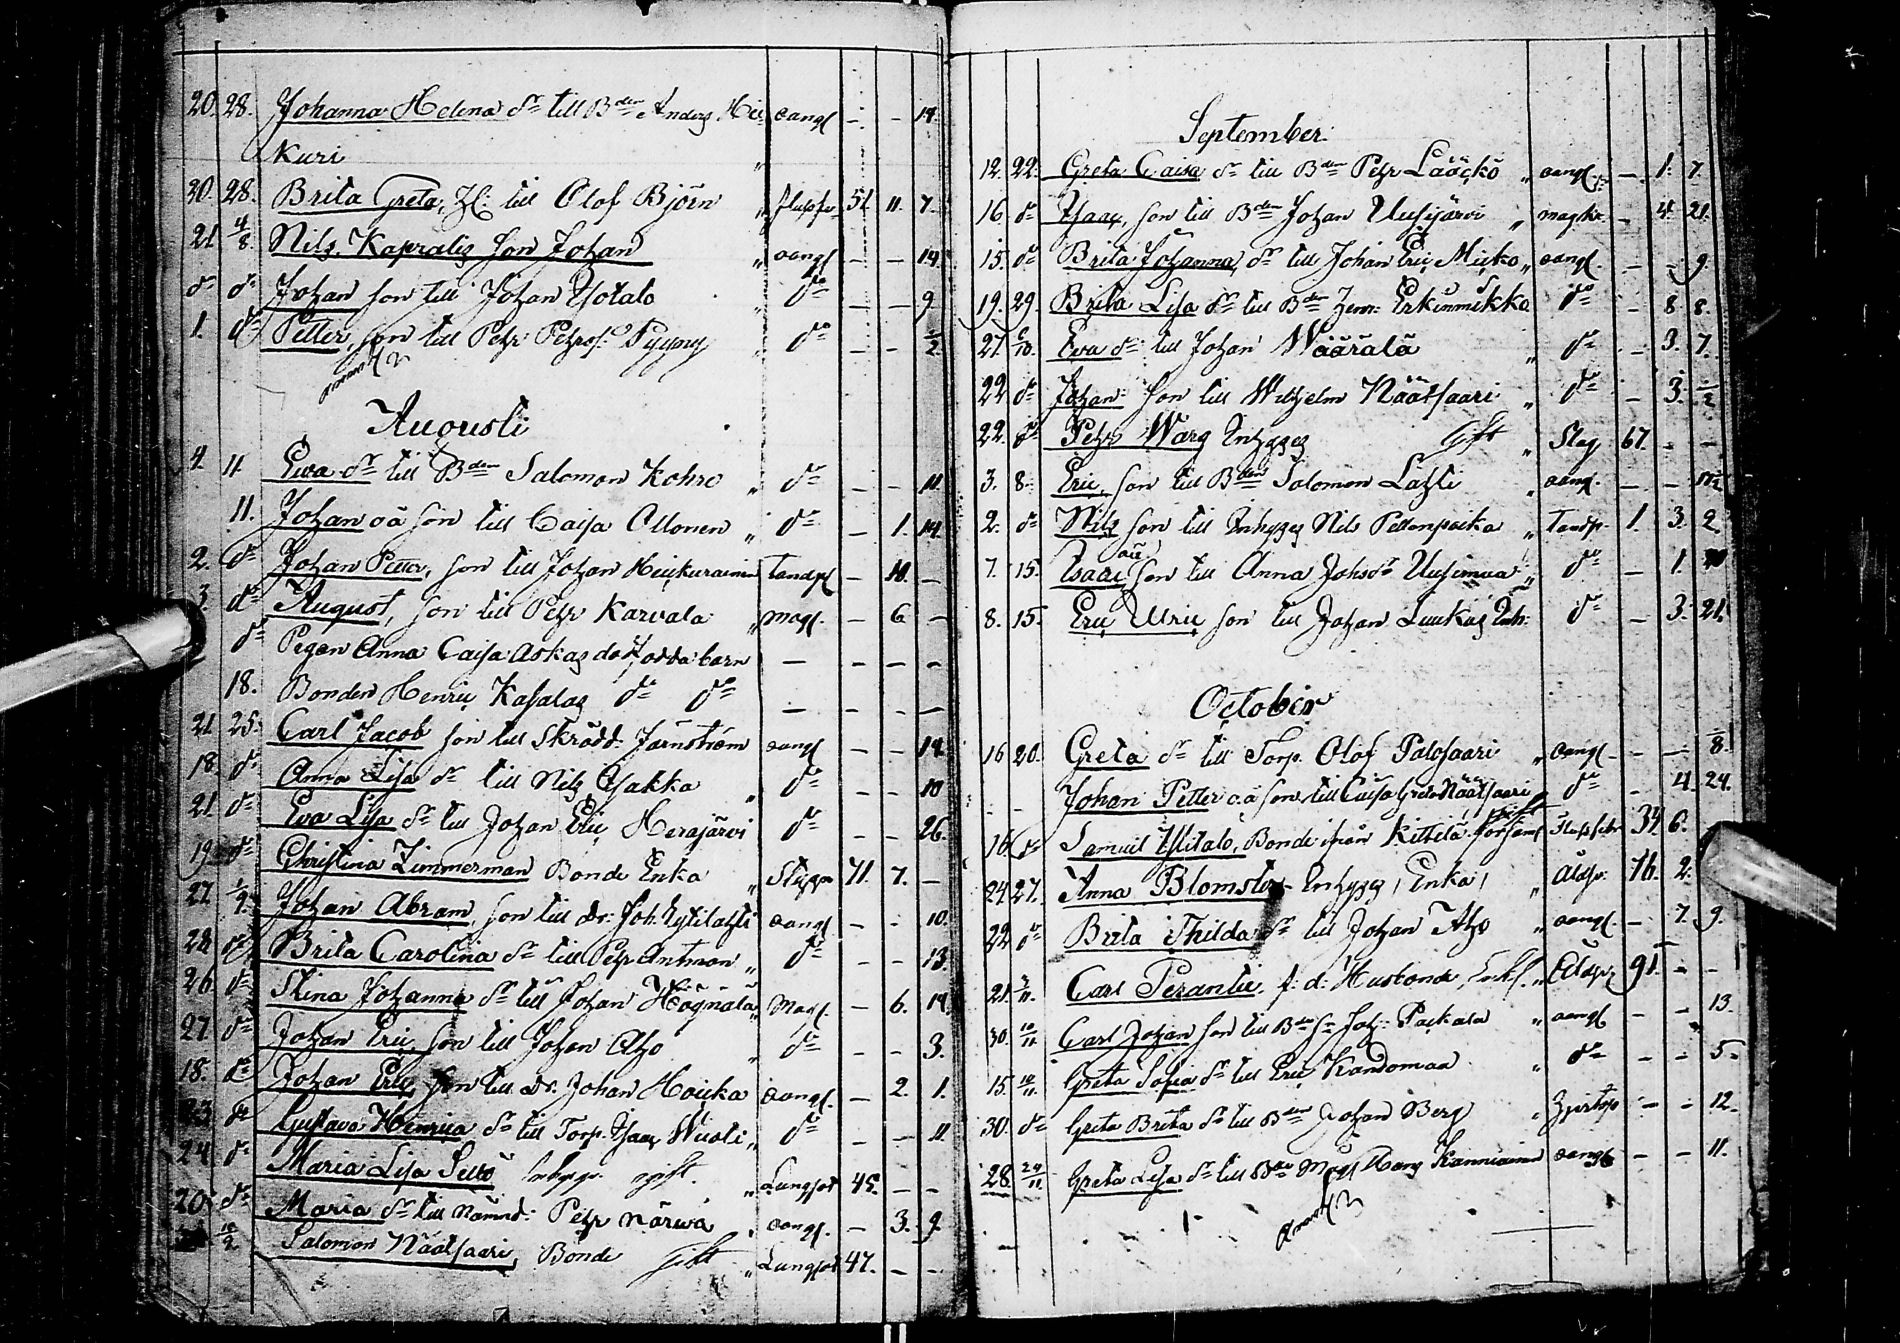 20. 28. Johanna Helena dr till Bden Anders Hie- oangf — — 14.
Kuri
30. 28. Brita Greta, till Olof Björn 51. 11. 7.
21 4/8. Nils Kapralis son Johan oangf — — 14.
do do Johan son till Johan Ylitalo do — — 9
1. do Petter, son till Petr Petrs. Pyyny do — — 1/2
Augusti
4. 11. Ewa dr till Bden Salomon Kohre do — — 11.
11. Johan oä son till Caisa Ollonen do — 1. 14.
2. do Johan Petter, son till Johan Hiukurainen Tandsl — 10. —
3. do August, son till Petr Karvala magf. — 6 —
do Pigan Anna Caisa Askas dödfödda barn — — — —
18. Bonden Henric Kassalas do do — — — —
21 25. Carl Jacob son till Skrädd. Järnström oangf — — 14.
18. do Anna Lisa dr till Nils Yjakka do — — 10
21 do Eva Lisa dr till Johan Eric Herajärvi do — — 26.
19 do Christina Zimmerman Bonde Enka 71. 7. —
27. 1/9. Johan Abram, son till Dr. Joh. oangf — — 10.
22 do Brita Carolina dr till Petr Antman do — — 13.
26 do Stina Johanna dr till Johan Högnälä Magf. — 6. 14
27. do Johan Eric son till Johan Alho do — — 3.
18. do Johan Eric son till Dr. Johan Hauka oangf. — 2. 1.
23 do Gustava Henrica dr till Torp. Isaac Wuoti do — — 11
24 do Maria Lisa Inhyses gift. Lungsot 45. — —
20. do Maria dr till Nämnd: Petr Närwä oangf. — 3. 9
10/2 Salomon Näätsaari, Bonde gift Lungsot 47. — —
September.
12. 22. Greta Caisa dr till Bden Petr Lääckö oangf. — 1. 7.
16. do Isaac, son till Bden Johan Uusijärvi — 4. 21.
15. do Brita Johanna, dr till Johan Eric Micko oangf. — — 9.
19. 29. Brita Lisa dr till Bden Henr. Erkinmikko do — 8 8.
27 6/10. Ewa dr till Johan Wäärälä do — 3. 7.
22 do Johan son till Wilhelm Näätsaari do — 3. 1/2
22. do Petr Warg Inhyses gift Slag 67. — —
3. 8. Eric, son till Bden Salomon Lahti oangf. — —
2. do Nils son till Inhyses Nils Pellonpaika Tandsp. 1. 3. 2
7. 15. Isaac oä son till Anna Johsdr Uusimaa do — 1.
8. 15. Eric Ulric son till Johan Luukas Inh: do — 3. 21.
October
16 20. Greta dr till Torp. Olof Palosaari oangf. — — /8.
— — Johan Petter oä son till Caisa Greta Näätsaari do 4. 24.
16. do Samuel Ylitalo, Bonde från Kittilä församl 34 6.
24 27. Anna Blomster Inhyses (Enka) Åldr. 76. 2.
22 do Brita Thilda dr till Johan Alho oangf. — 7. 9.
21. 3/11. Carl Peranti, f. d. Husbonde, Enkl. Åldr. 91. — —
30. 10/11 Carl Johan son till Bdes Sn Joh. Paikala oangf — — 13.
15. 10/11. Greta Sofia dr till Eric Kandomaa do — — 5.
30. do Greta Brita dr till Bden Johan Berg — — 12.
28. 24/11 Greta Lisa dr till Bde Mågs Hans Kanniainen oangf — — 11.